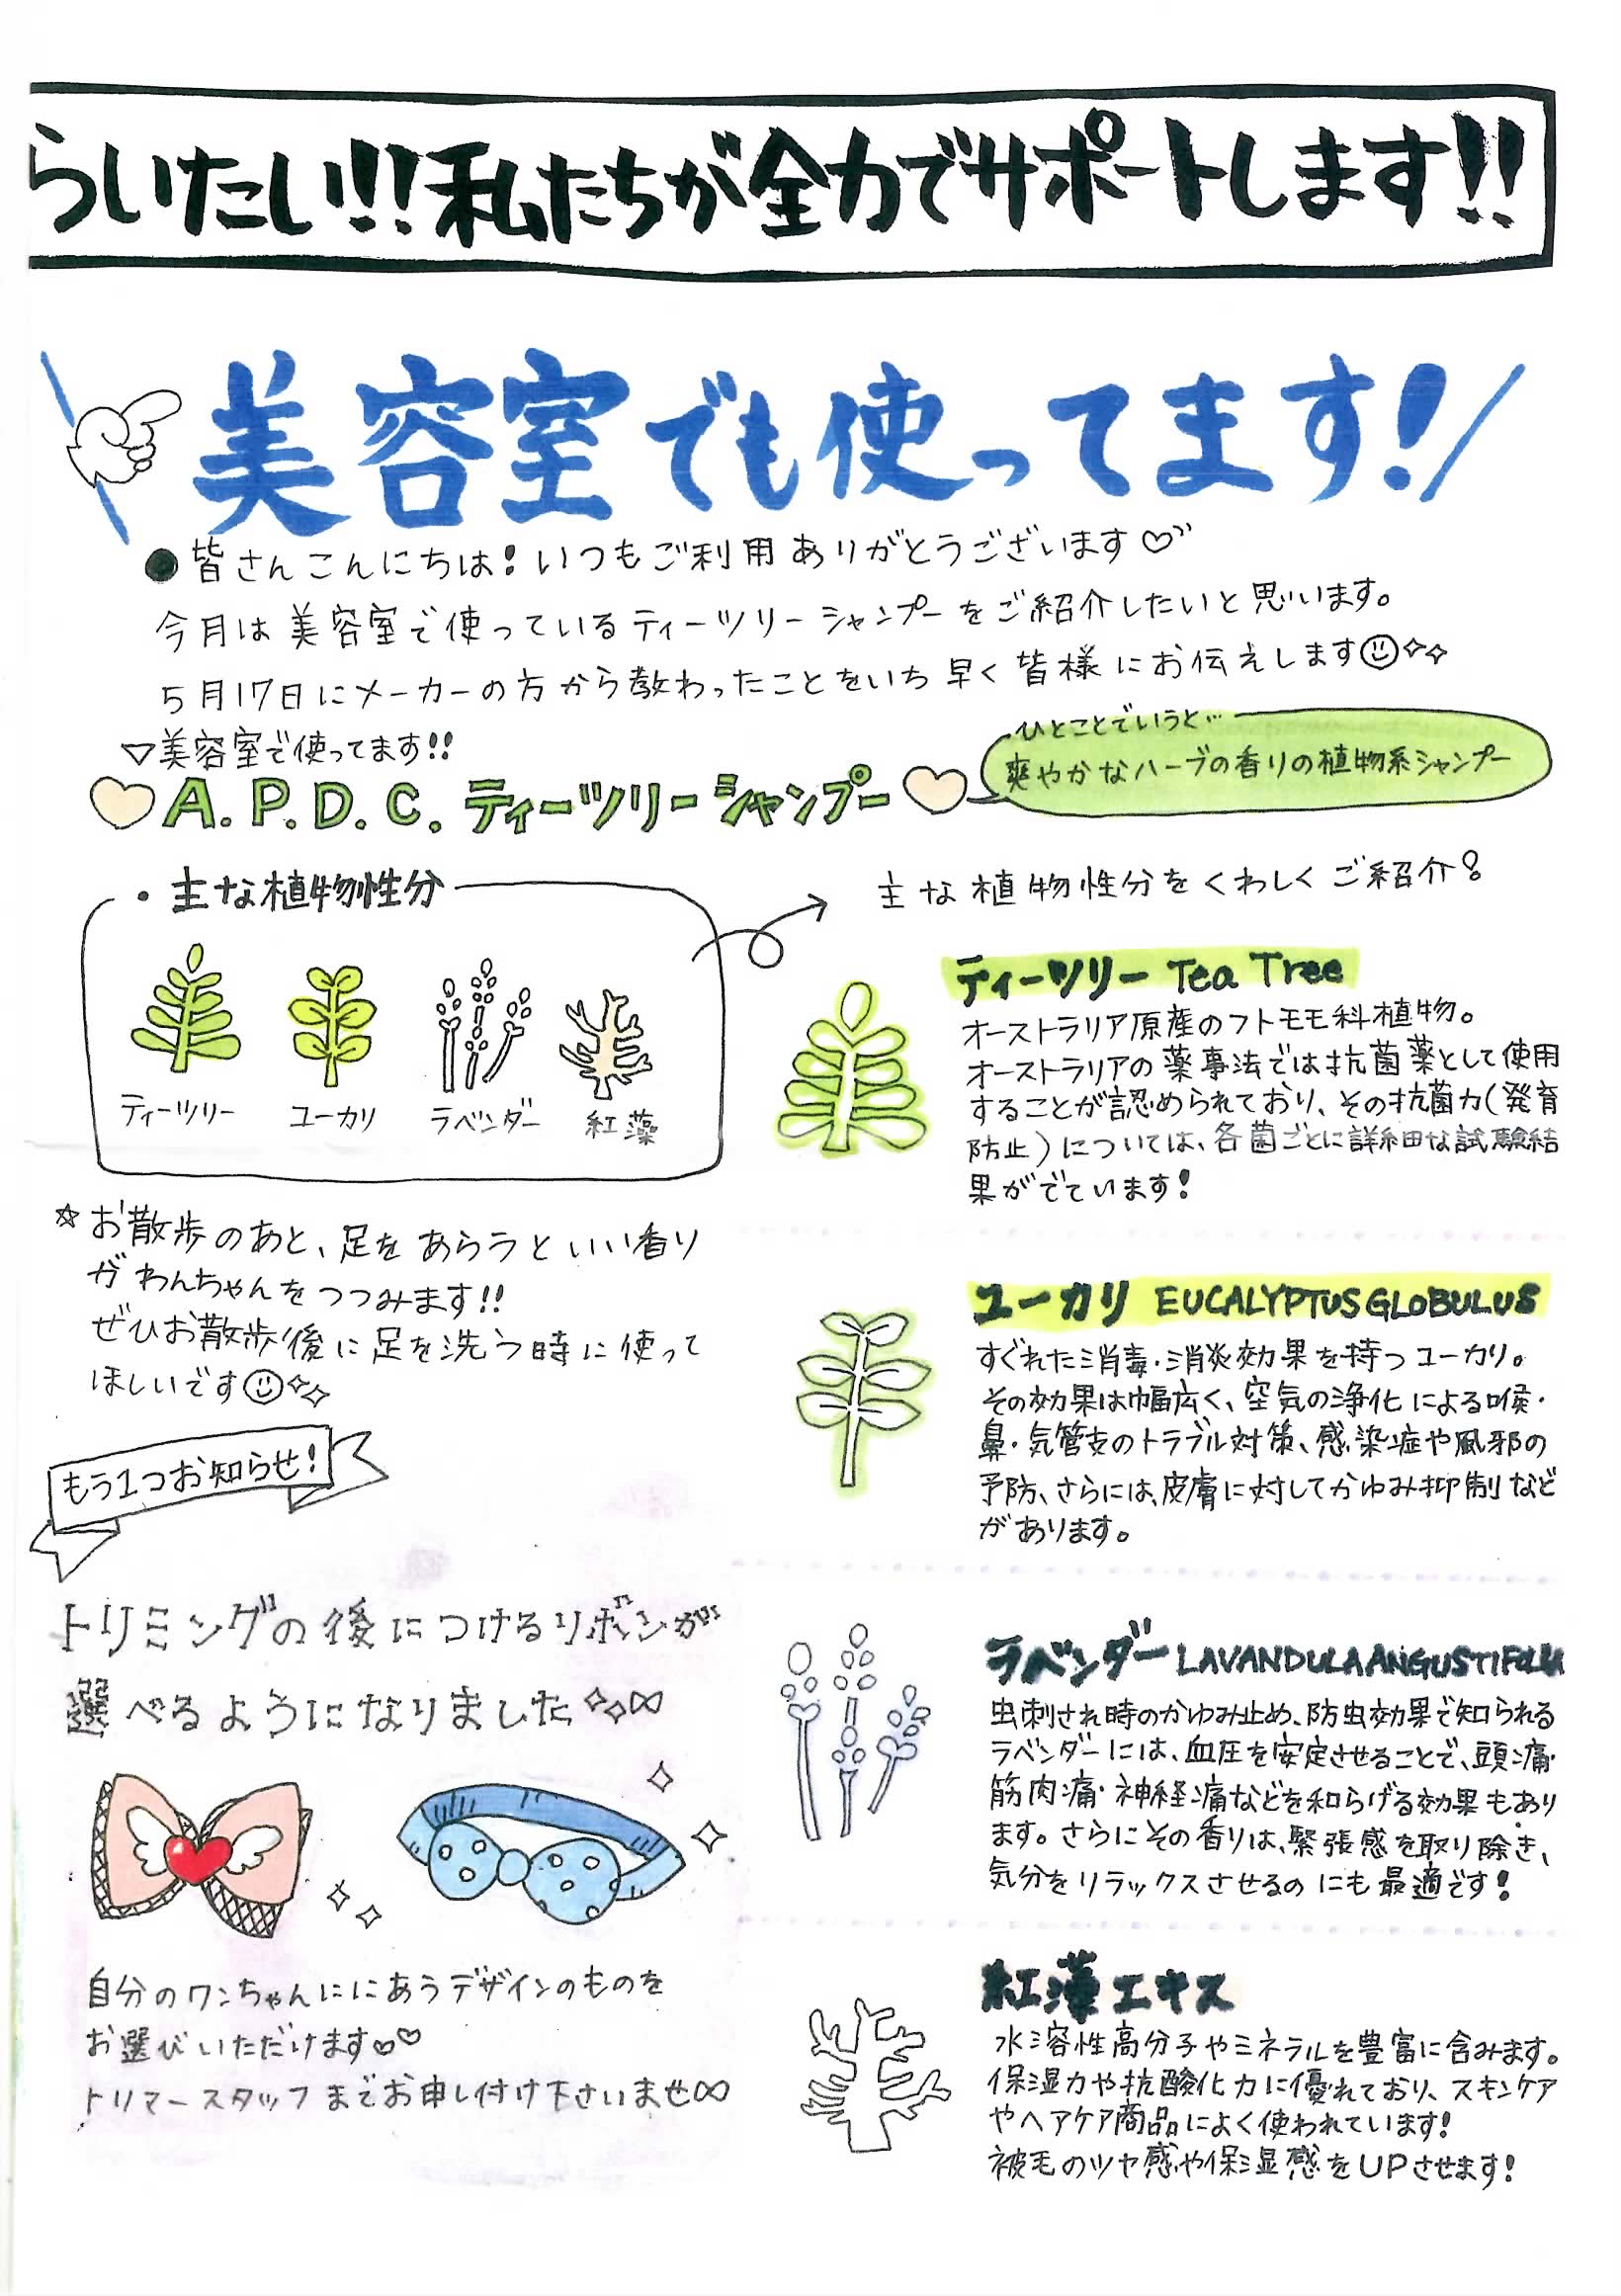 らいたい!!私たちが全力でサポートします!!
美容室でも使ってます!
●皆さんこんにちは!いつもご利用ありがとうございます♡
今月は美容室で使っているティーツリーシャンプーをご紹介したいと思います。
5月17日にメーカーの方から教わったことをいち早く皆様にお伝えします
▽美容室で使ってます!!
A.P.D.C.ティーツリーシャンプー
ひとことでいうと…
爽やかなハーブの香りの植物系シャンプー
・主な植物性分
ティーツリー
ユーカリ
ラベンダー
紅藻
☆お散歩のあと、足をあらうといい香り
がわんちゃんをつつみます!!
ぜひお散歩後に足を洗う時に使って
ほしいです
もう1つお知らせ!
トリミングの後につけるリボンが
選べるようになりました
自分のワンちゃんににあうデザインのものを
お選びいただけます♡♡
トリマースタッフまでお申し付け下さいませ∞
主な植物性分をくわしくご紹介!
ティーツリー Tea Tree
オーストラリア原産のフトモモ科植物。
オーストラリアの薬事法では抗菌薬として使用
することが認められており、その抗菌力(発育
防止)については、各菌ごとに詳細な試験結
果がでています!
ユーカリ EUCALYPTUS GLOBULUS
すぐれた消毒・消炎効果を持つユーカリ。
その効果は幅広く、空気の浄化による喉・
鼻・気管支のトラブル対策、感染症や風邪の
予防、さらには、皮膚に対してかゆみ抑制など
があります。
ラベンダー LAVANDULA ANGUSTIFOLIA
虫刺され時のかゆみ止め、防虫効果で知られる
ラベンダーには、血圧を安定させることで、頭痛・
筋肉痛・神経痛などを和らげる効果もあり
ます。さらにその香りは、緊張感を取り除き、
気分をリラックスさせるのにも最適です!
紅藻エキス
水溶性高分子やミネラルを豊富に含みます。
保湿力や抗酸化力に優れており、スキンケア
やヘアケア商品によく使われています!
被毛のツヤ感や保湿感をUPさせます!